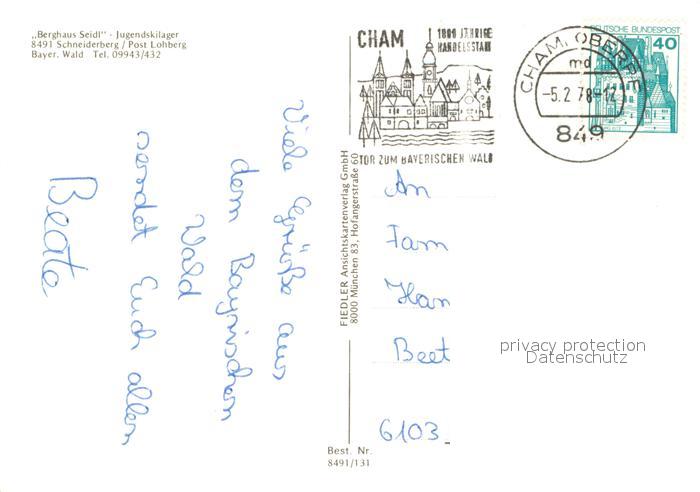 „Berghaus Seidl" - Jugendskilager
8491 Schneiderberg / Post Lohberg
Bayer. Wald Tel. 09943/432
Viele Grüße aus
dem Bayrischen
Wald
sendet Euch allen
Beate
FIEDLER Ansichtskartenverlag GmbH
8000 München 83, Hofangerstraße 60
Best. Nr.
8491/131
CHAM
HANDELSSTADT
TOR ZUM BAYERISCHEN WALD
CHAM, OBERPF
md
-5.2.78-12
849
DEUTSCHE BUNDESPOST
40
An
Fam
Han
Beet
6103
privacy protection
Datenschutz